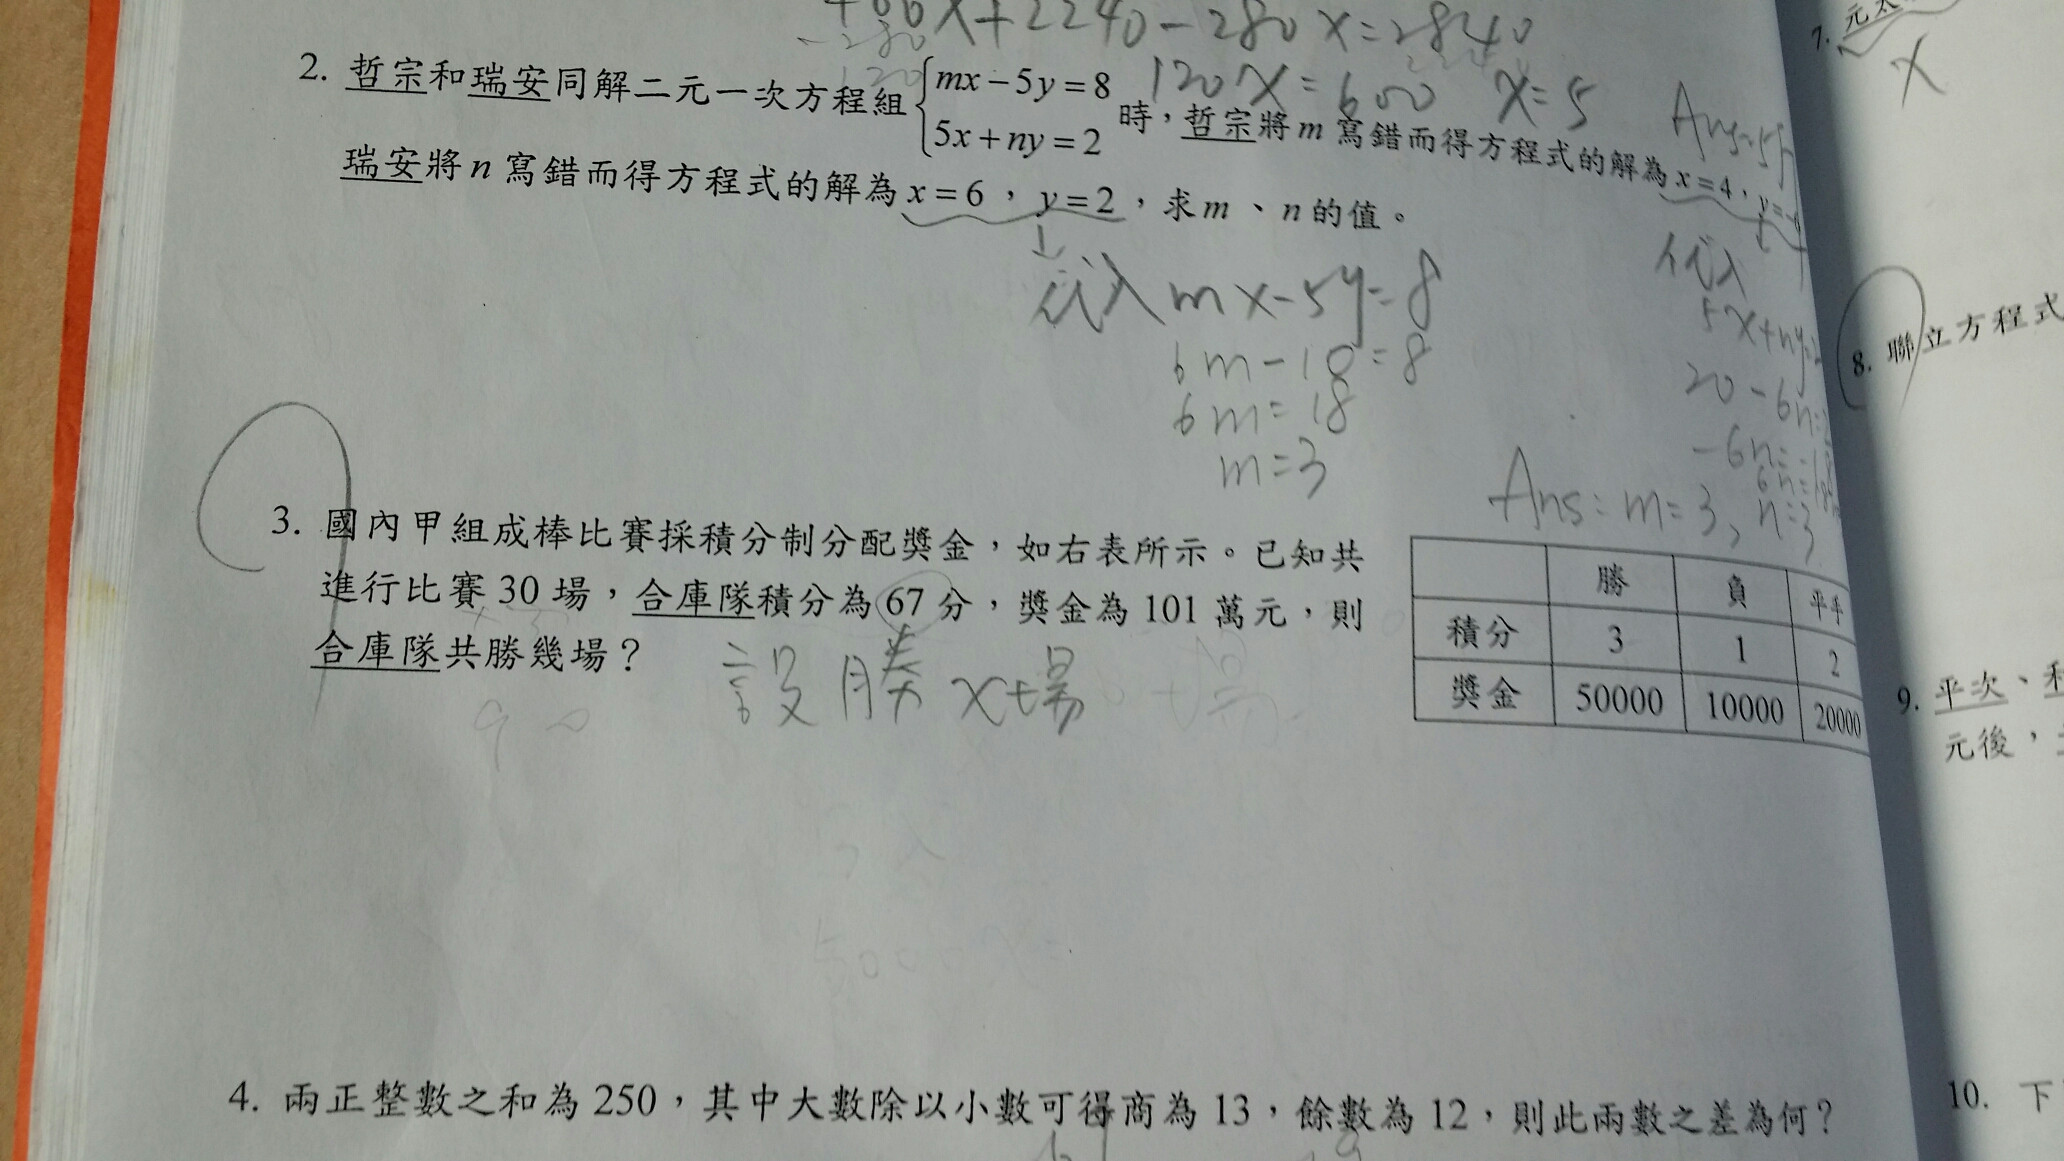 +00x+2240-280x=2840
-280
120
120x=600 x=5
2. 哲宗和瑞安同解二元一次方程組 {mx-5y=8 5x+ny=2 時，哲宗將m寫錯而得方程式的解為x=4，y=-6
瑞安將n寫錯而得方程式的解為x=6，y=2，求m、n的值。
代入 mx-5y=8
6m-10=8
6m=18
m=3
代入
5x+ny=2
20-6n=2
-6n=-18
6n=18
n=3
Ans: m=3,
3. 國內甲組成棒比賽採積分制分配獎金，如右表所示。已知共
進行比賽30場，合庫隊積分為67分，獎金為101萬元，則
合庫隊共勝幾場？
設勝x場
90
勝 負 平手
積分 3 1 2
獎金 50000 10000 20000
4. 兩正整數之和為250，其中大數除以小數可得商為13，餘數為12，則此兩數之差為何？
7.
x
8. 聯立方程式
9. 平次、
元後，
10. 下